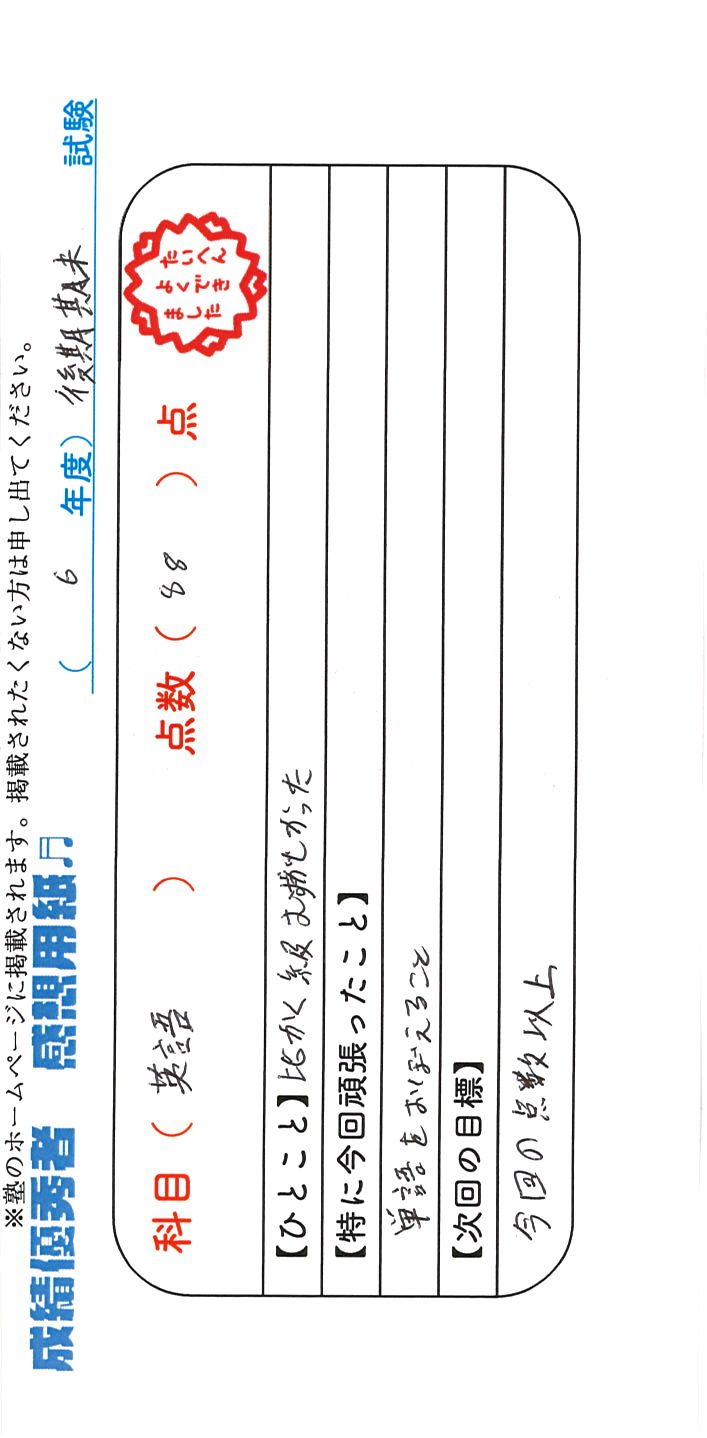 ※塾のホームページに掲載されます。掲載されたくない方は申し出てください。
成績優秀者 感想用紙♬ ( 6 年度) 後期期末 試験
科目 ( 英語 ) 点数 ( 88 ) 点
たいへん
よくでき
ました
【ひとこと】 ひかく級むずかしかった
【特に今回頑張ったこと】
単語をおぼえること
【次回の目標】
今回の点数以上